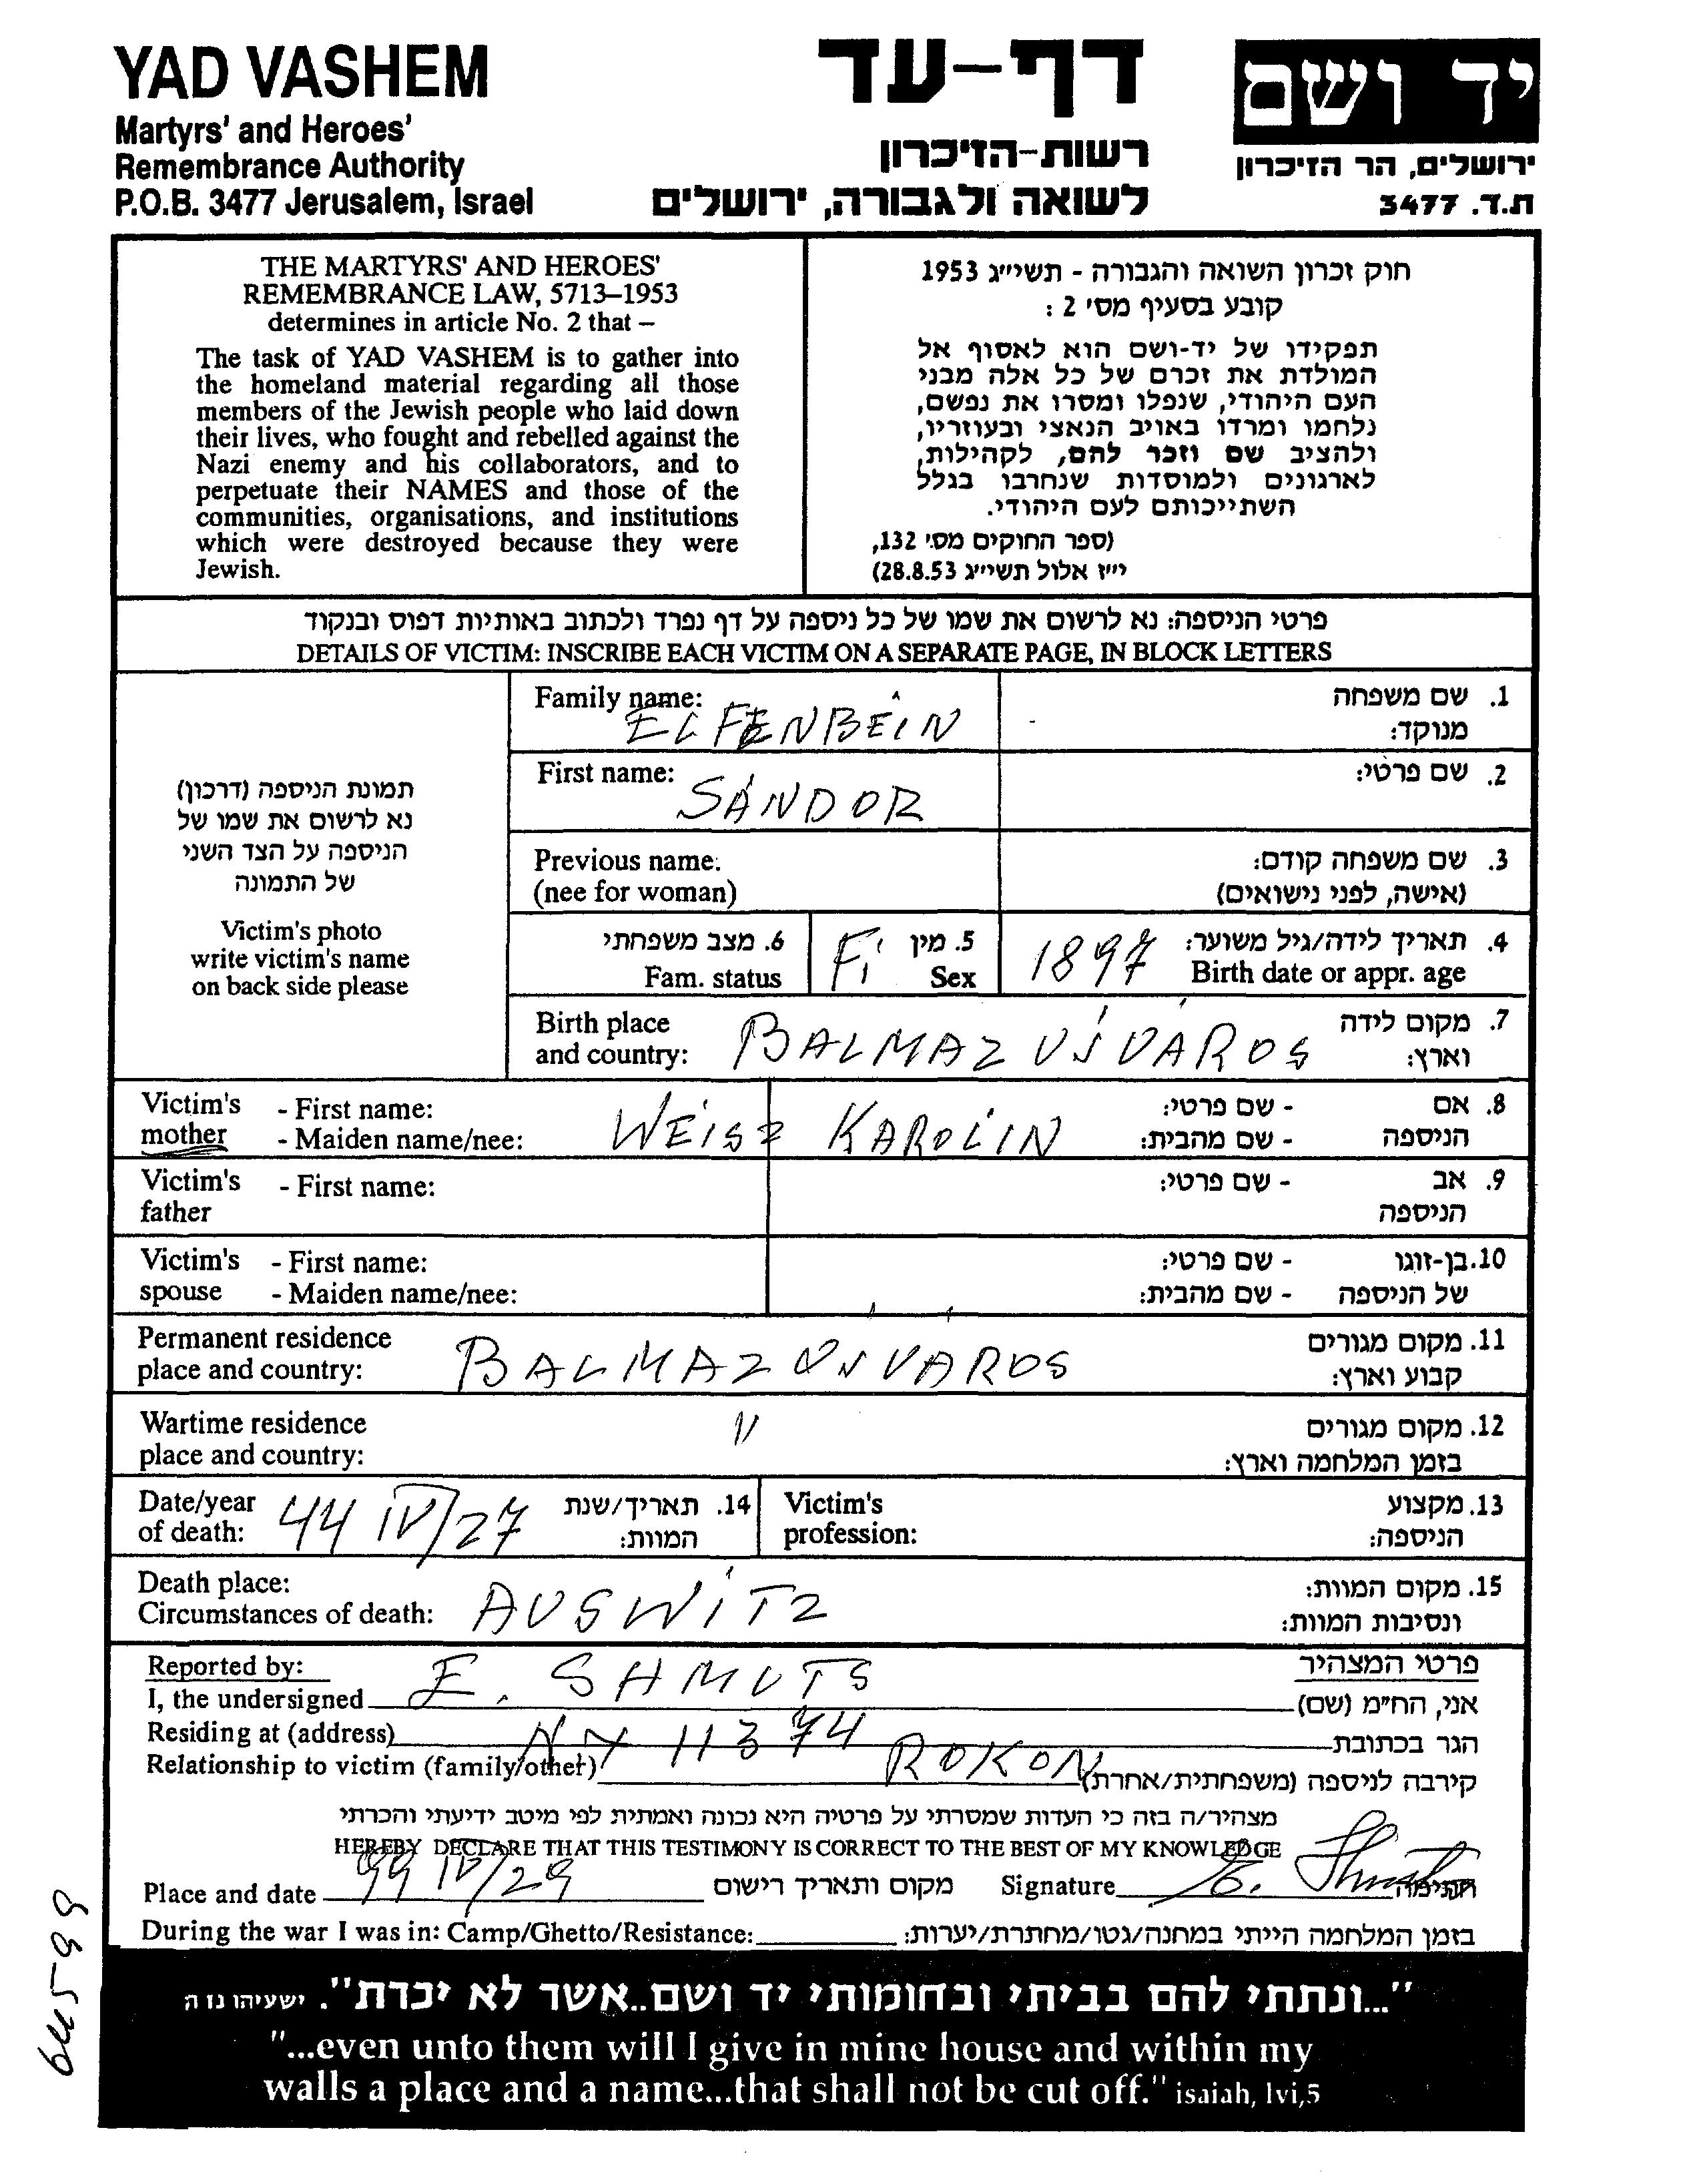 YAD VASHEM
Martyrs' and Heroes'
Remembrance Authority
P.O.B. 3477 Jerusalem, Israel
דף-עד
רשות-הזיכרון
לשואה ולגבורה, ירושלים
יד ושם
ירושלים, הר הזיכרון
ת.ד. 3477
THE MARTYRS' AND HEROES'
REMEMBRANCE LAW, 5713–1953
determines in article No. 2 that –
The task of YAD VASHEM is to gather into
the homeland material regarding all those
members of the Jewish people who laid down
their lives, who fought and rebelled against the
Nazi enemy and his collaborators, and to
perpetuate their NAMES and those of the
communities, organisations, and institutions
which were destroyed because they were
Jewish.
חוק זכרון השואה והגבורה - תשי״ג 1953
קובע בסעיף מס׳ 2 :
תפקידו של יד-ושם הוא לאסוף אל
המולדת את זכרם של כל אלה מבני
העם היהודי, שנפלו ומסרו את נפשם,
נלחמו ומרדו באויב הנאצי ובעוזריו,
ולהציב שם וזכר להם, לקהילות,
לארגונים ולמוסדות שנחרבו בגלל
השתייכותם לעם היהודי.
(ספר החוקים מס׳ 132,
י״ז אלול תשי״ג 28.8.53)
פרטי הניספה: נא לרשום את שמו של כל ניספה על דף נפרד ולכתוב באותיות דפוס ובנקוד
DETAILS OF VICTIM: INSCRIBE EACH VICTIM ON A SEPARATE PAGE, IN BLOCK LETTERS
תמונת הניספה (דרכון)
נא לרשום את שמו של
הניספה על הצד השני
של התמונה
Victim's photo
write victim's name
on back side please
Family name: ELFENBEIN 1. שם משפחה
מנוקד:
First name: SÁNDOR 2. שם פרטי:
Previous name: 3. שם משפחה קודם:
(nee for woman) (אישה, לפני נישואים)
6. מצב משפחתי Fi 5. מין 1897 4. תאריך לידה/גיל משוער:
Fam. status Sex Birth date or appr. age
Birth place 7. מקום לידה
and country: BALMAZ ÚJVÁROS וארץ:
Victim's - First name: - שם פרטי: 8. אם
mother - Maiden name/nee: WEISZ KAROLIN - שם מהבית: הניספה
Victim's - First name: - שם פרטי: 9. אב
father הניספה
Victim's - First name: - שם פרטי: 10. בן-זוגו
spouse - Maiden name/nee: - שם מהבית: של הניספה
Permanent residence 11. מקום מגורים
place and country: BALMAZ ÚJVÁROS קבוע וארץ:
Wartime residence 〃 12. מקום מגורים
place and country: בזמן המלחמה וארץ:
Date/year 44 IV/27 14. תאריך/שנת Victim's 13. מקצוע
of death: המוות: profession: הניספה:
Death place: 15. מקום המוות:
Circumstances of death: AUSWITZ ונסיבות המוות:
Reported by: פרטי המצהיר
I, the undersigned E. SHMUTS אני, הח״מ (שם)
Residing at (address) NY 11374 הגר בכתובת
Relationship to victim (family/other) ROKON קירבה לניספה (משפחתית/אחרת)
מצהיר/ה בזה כי העדות שמסרתי על פרטיה היא נכונה ואמתית לפי מיטב ידיעתי והכרתי
HEREBY DECLARE THAT THIS TESTIMONY IS CORRECT TO THE BEST OF MY KNOWLEDGE
Place and date 99 IV/29 מקום ותאריך רישום Signature E. חתימה
During the war I was in: Camp/Ghetto/Resistance: בזמן המלחמה הייתי במחנה/גטו/מחתרת/יערות:
"...ונתתי להם בביתי ובחומותי יד ושם..אשר לא יכרת". ישעיהו נו ה
"...even unto them will I give in mine house and within my
walls a place and a name...that shall not be cut off." isaiah, lvi,5